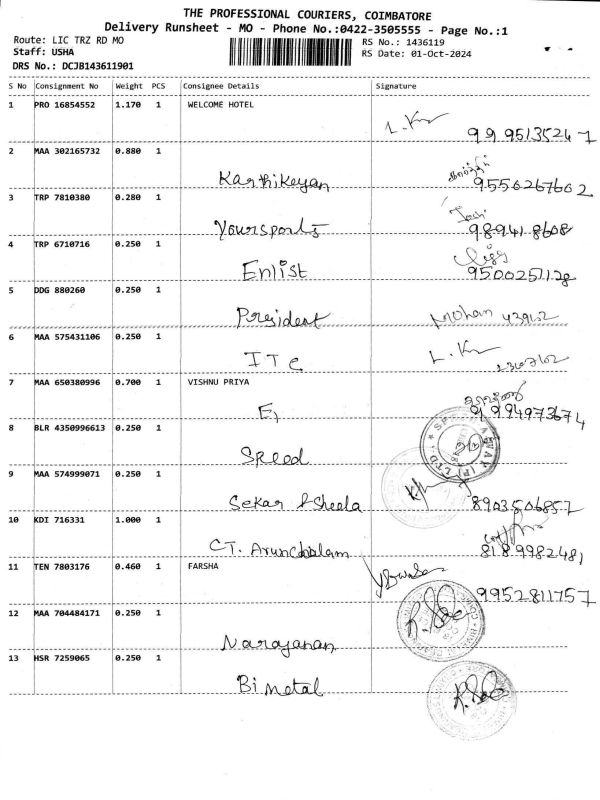 THE PROFESSIONAL COURIERS, COIMBATORE
Delivery Runsheet - MO - Phone No.:0422-3505555 - Page No.:1
Route: LIC TRZ RD MO RS No.: 1436119
Staff: USHA RS Date: 01-Oct-2024
DRS No.: DCJB143611901
S No Consignment No Weight PCS Consignee Details Signature
1 PRO 16854552 1.170 1 WELCOME HOTEL
L. Km
9995135247
2 MAA 302165732 0.880 1
Karthikeyan 9556267602
3 TRP 7810380 0.280 1
Yoursports 98941 8608
4 TRP 6710716 0.250 1
Enlist 9500251128
5 DDG 880260 0.250 1
President Mohan
6 MAA 575431106 0.250 1
ITC L. Km
7 MAA 650380996 0.700 1 VISHNU PRIYA
9994973674
8 BLR 4350996613 0.250 1
Speed
9 MAA 574999071 0.250 1
Sekar & Sheela 8903506857
10 KDI 716331 1.000 1
CT. Arunchalam 8189982481
11 TEN 7803176 0.460 1 FARSHA
9952811757
12 MAA 704484171 0.250 1
Narayanan
13 HSR 7259065 0.250 1
Bimetal